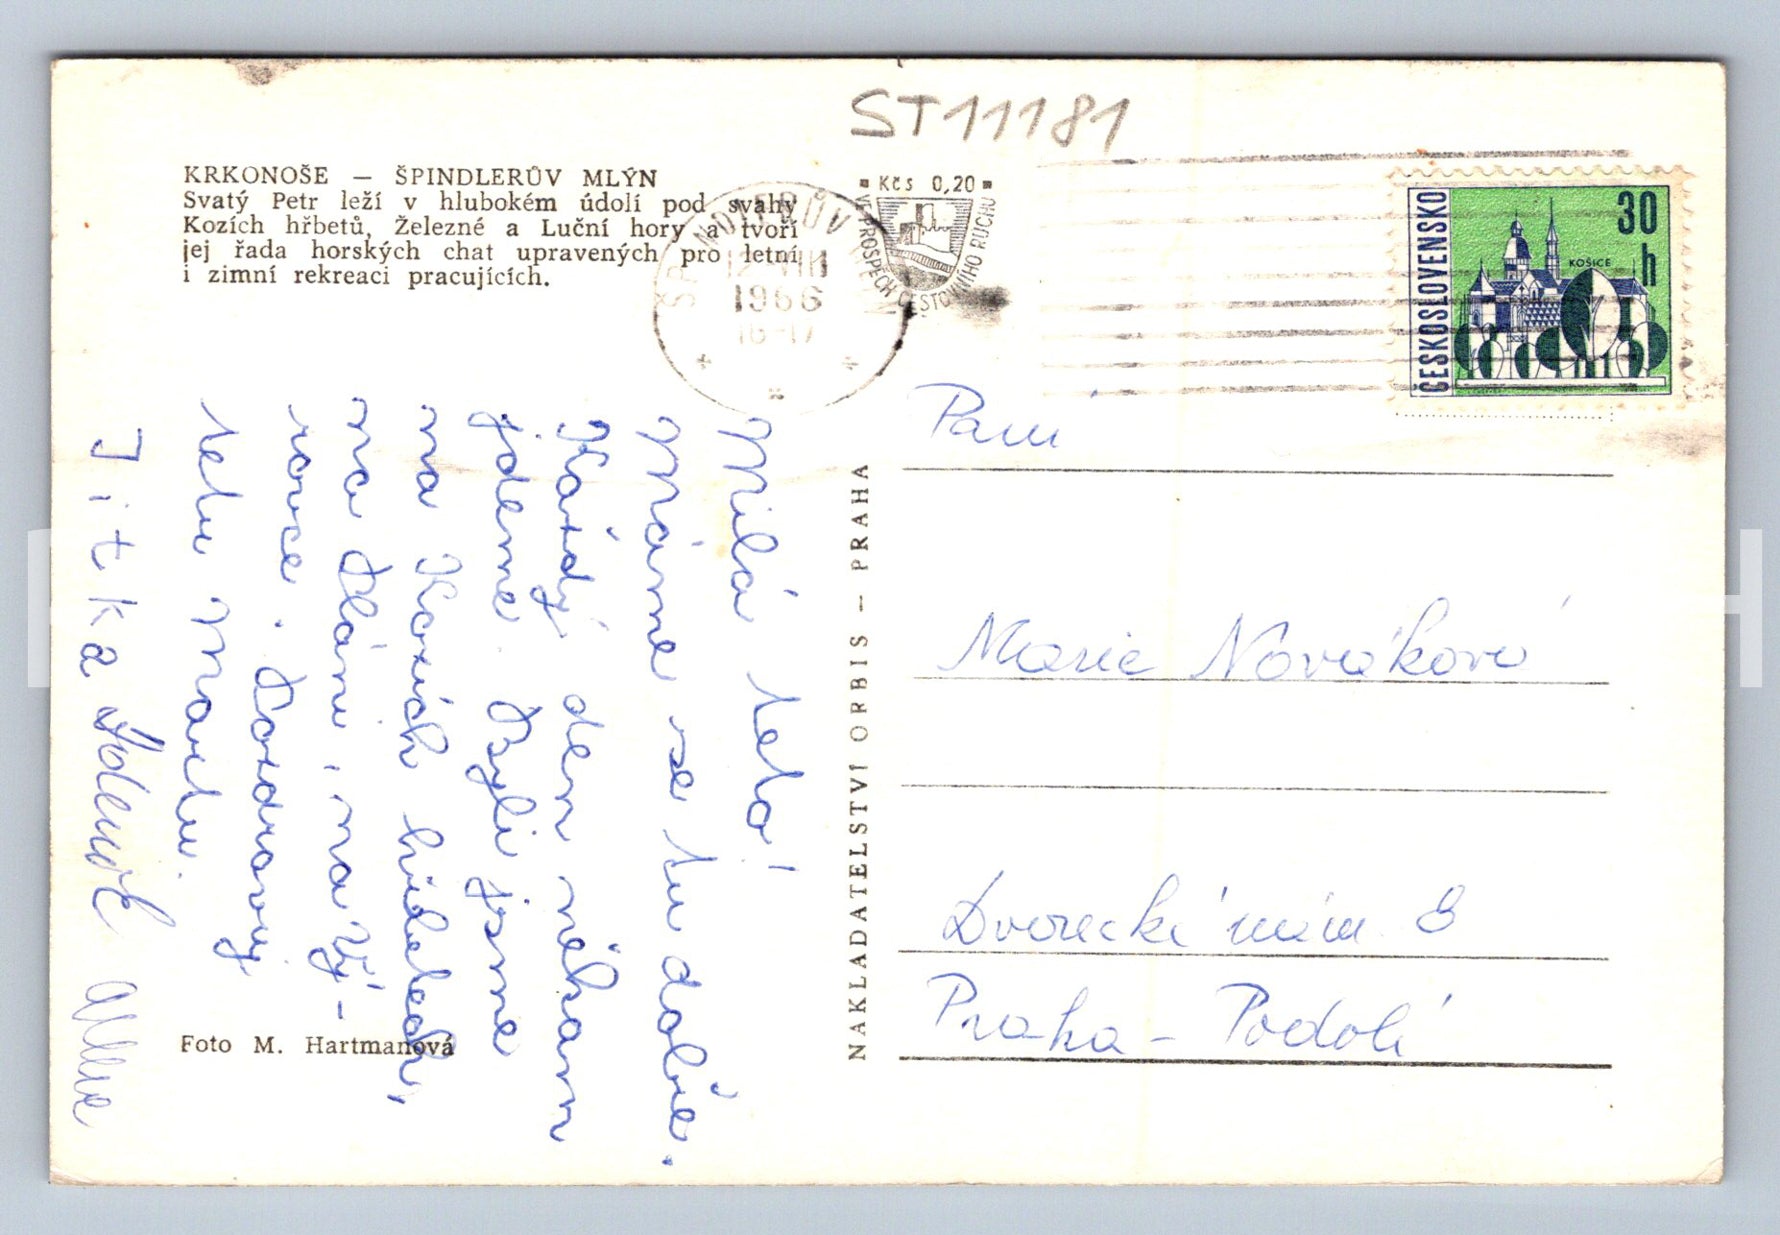 ST11181
KRKONOŠE — ŠPINDLERŮV MLÝN
Svatý Petr leží v hlubokém údolí pod svahy
Kozích hřbetů, Železné a Luční hory a tvoří
jej řada horských chat upravených pro letní
i zimní rekreaci pracujících.
12.VIII
1966
16-17
Kčs 0,20
VE PROSPĚCH CESTOVNÍHO RUCHU
ČESKOSLOVENSKO
30
h
KOŠICE
Milá teto!
Máme se tu dobře.
Každý den někam
jdeme. Byli jsme
na Kozích hřbetech,
na Pláni, na Vý-
rovce. Pozdravuj
tetu Mařu.
Jitka Zdeněk
NAKLADATELSTVÍ ORBIS — PRAHA
Paní
Marie Nováková
Dvorecké nám. 8
Praha - Podolí
Foto M. Hartmanová